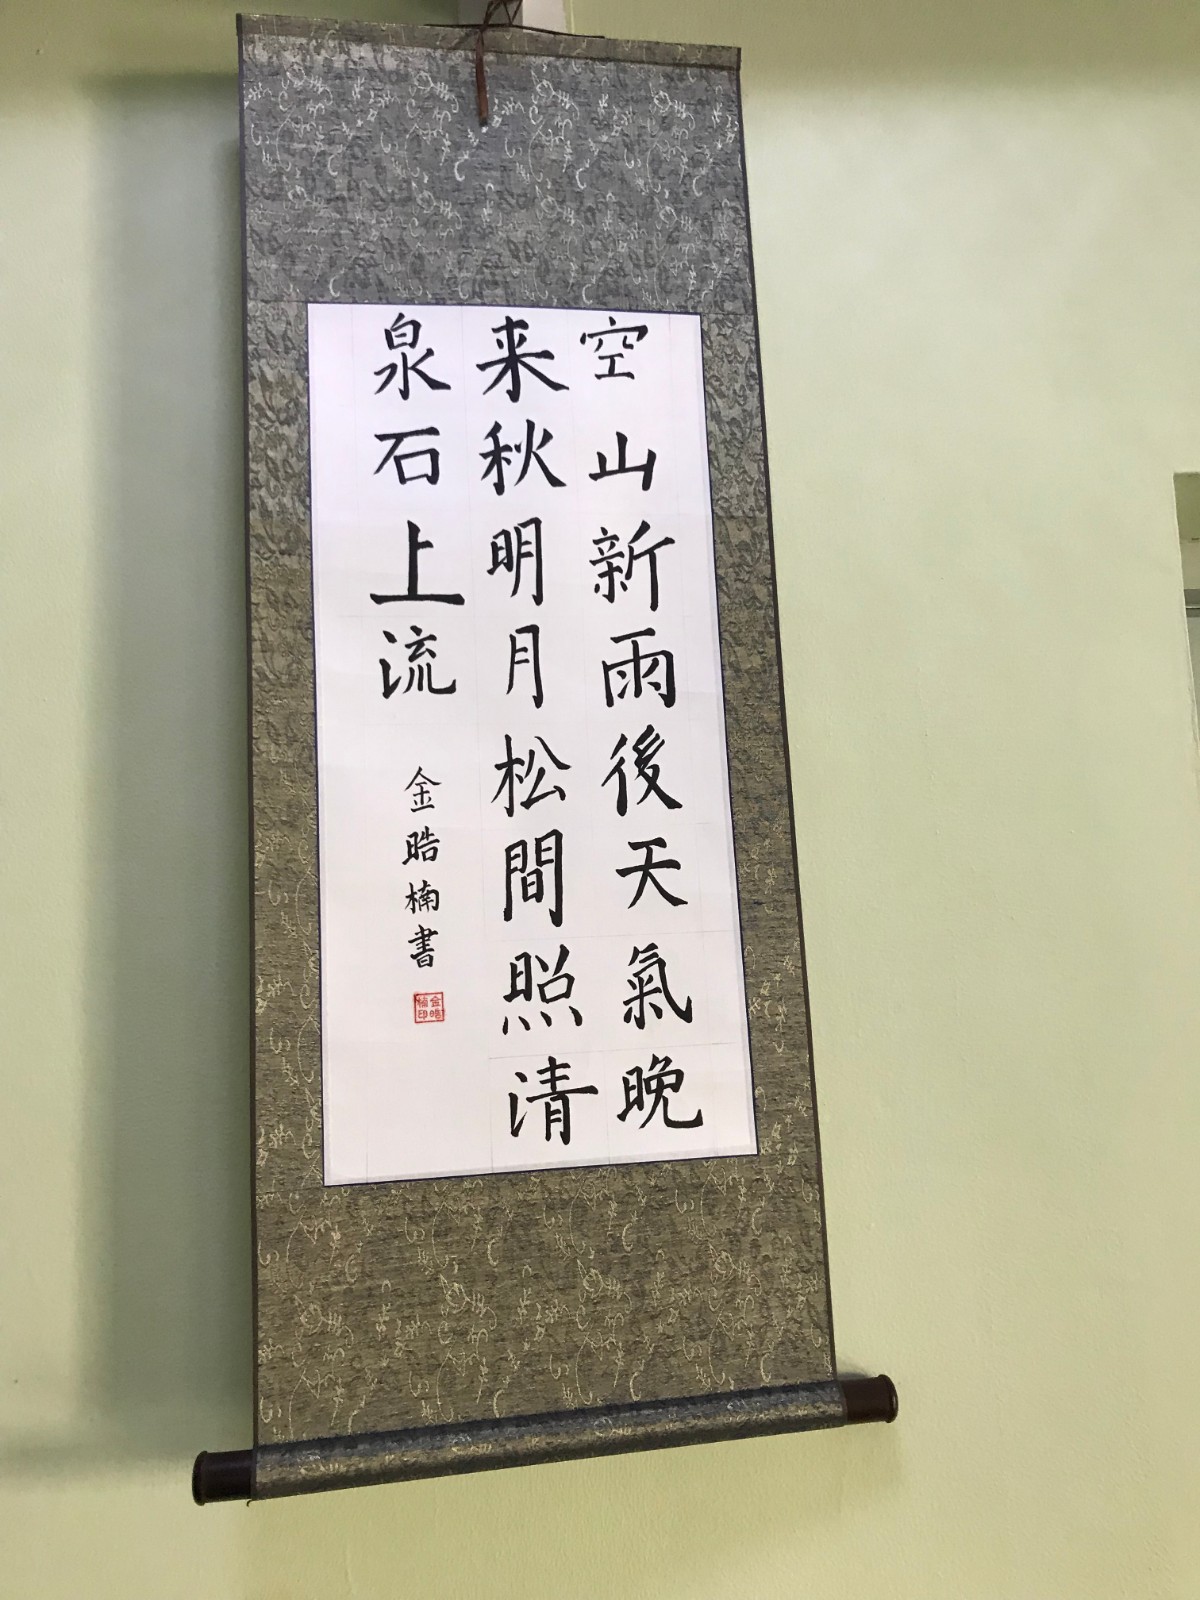 空山新雨後天氣晚
来秋明月松間照清
泉石上流
金晧楠書
金晧楠印